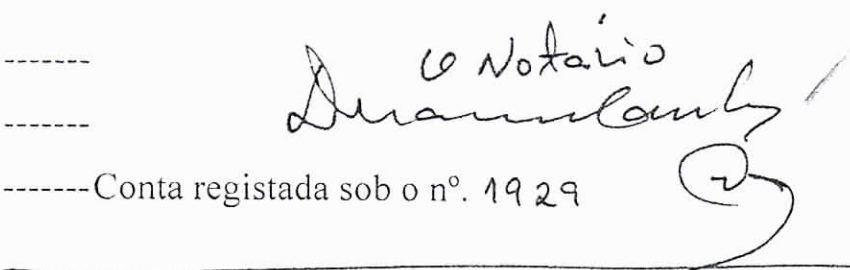 O Notário
-------
-------
-------Conta registada sob o nº. 1929